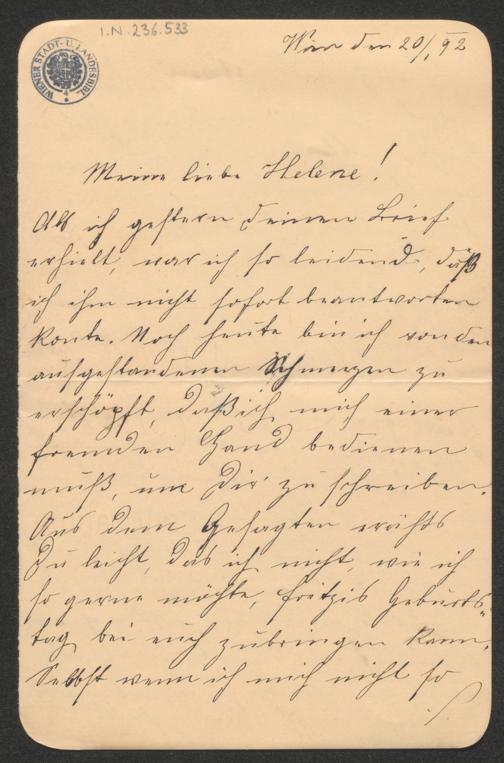 I.N. 236.533
WIENER STADT- U. LANDESBIBL.
Wien den 20/1 92
Meine liebe Helene!
Als ich gestern deinen Brief
erhielt, war ich so leidend, daß
ich ihn nicht sofort beantworten
konte. Noch heute bin ich von den
ausgestandenen Schmerzen zu
erschöpft, daß ich mich einer
fremden Hand bedienen
muß, um Dir zu schreiben.
Aus dem Gesagten
Du leicht, das ich nicht, wie ich
so gerne möchte, Fritzis Geburts-
tag bei euch zubringen kann.
Selbst wenn ich mich nicht so